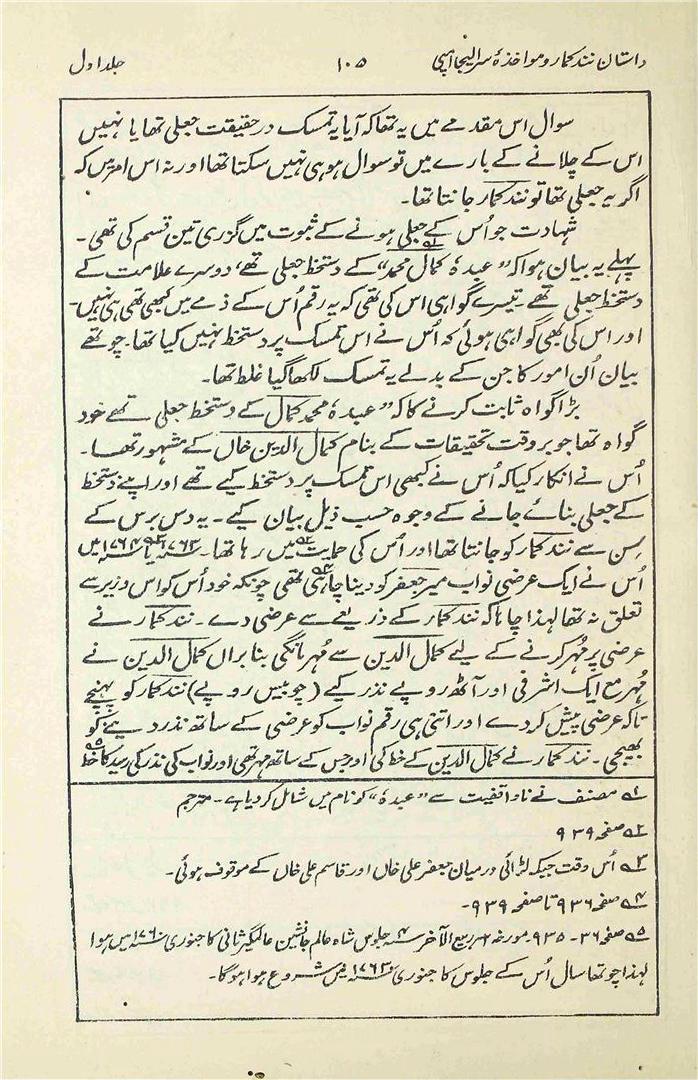 داستان نند کمار و مواخذۂ سر الیجا امپی ۱۰۵ جلد اول
سوال اس مقدمے میں یہ تھا کہ آیا یہ تمسک در حقیقت جعلی تھا یا نہیں
اس کے چلانے کے بارے میں تو سوال ہو ہی نہیں سکتا تھا اور نہ اس امر میں کہ
اگر یہ جعلی تھا تو نند کمار جانتا تھا۔
شہادت جو اُس کے جعلی ہونے کے ثبوت میں گزری تین قسم کی تھی۔
پہلے یہ بیان ہوا کہ ”عبدہٗ کمال محمد“ کے دستخط جعلی تھے، دوسرے علامت کے
دستخط جعلی تھے۔ تیسرے گواہی اس کی تھی کہ یہ رقم اُس کے ذمے میں کبھی تھی ہی نہیں۔
اور اس کی بھی گواہی ہوئی کہ اُس نے اس تمسک پر دستخط نہیں کیا تھا۔ چوتھے
بیان اُن امور کا جن کے بدلے یہ تمسک لکھا گیا غلط تھا۔
بڑا گواہ ثابت کرنے کا کہ ”عبدہٗ محمد کمال کے دستخط جعلی تھے خود
گواہ تھا جو بر وقت تحقیقات کے بنام کمال الدین خاں کے مشہور تھا۔
اُس نے انکار کیا کہ اُس نے کبھی اس تمسک پر دستخط کیے تھے اور اپنے دستخط
کے جعلی بنائے جانے کے وجوہ حسب ذیل بیان کیے۔ یہ دس برس کے
سِن سے نند کمار کو جانتا تھا اور اُس کی حمایت ۲؎ میں رہا تھا۔ ۱۷۶۳ء یا ۱۷۶۴ء میں
اُس نے ایک عرضی نواب میر جعفر کو دینا چاہی تھی چونکہ خود اُس کو اس وزیر سے
تعلق نہ تھا لہذا چاہا کہ نند کمار کے ذریعے سے عرضی دے۔ نند کمار نے
عرضی پر مُہر کرنے کے لیے کمال الدین سے مُہر مانگی بنا براں کمال الدین نے
مُہر مع ایک اشرفی اور آٹھ روپے نذر کیے (چوبیس روپے) نند کمار کو پہنچے
تاکہ عرضی پیش کر دے اور اتنی ہی رقم نواب کو عرضی کے ساتھ نذر دینے کو
بھیجی۔ نند کمار نے کمال الدین کے خط کی اور جس کے ساتھ مہر تھی اور نواب کی نذر کی رسید کا خط ۵؎
۱؎ مصنف نے ناواقفیت سے ”عبدہٗ“ کو نام میں شامل کر دیا ہے۔ مترجم
۲؎ صفحہ ۹۳۹
۳؎ اُس وقت جبکہ لڑائی درمیان جعفر علی خاں اور قاسم علی خاں کے موقوف ہوئی۔
۴؎ صفحہ ۹۳۶ تا صفحہ ۹۳۹۔
۵؎ صفحہ ۳۶۔ ۹۳۵۔ مورخہ ۶ ربیع الآخر ۴؁ جلوس شاہ عالم جانشین عالمگیر ثانی کا جنوری ۱۷۶۰ء میں ہوا
لہذا چوتھا سال اُس کے جلوس کا جنوری ۱۷۶۳ء میں شروع ہوا ہوگا۔